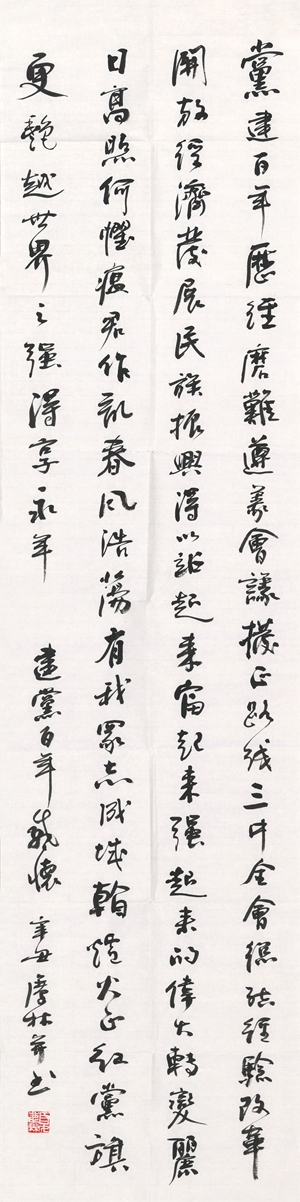 黨建百年歷經磨難遵義會議撥正路线三中全會總結經驗改革
開放經濟發展民族振興得以站起来富起来强起来的偉大轉變麗
日高照何懼瘟君作亂春風浩蕩有我眾志成城火正红黨旗
更艷越世界之强得享永年 建黨百年感懷 辛丑 林并书